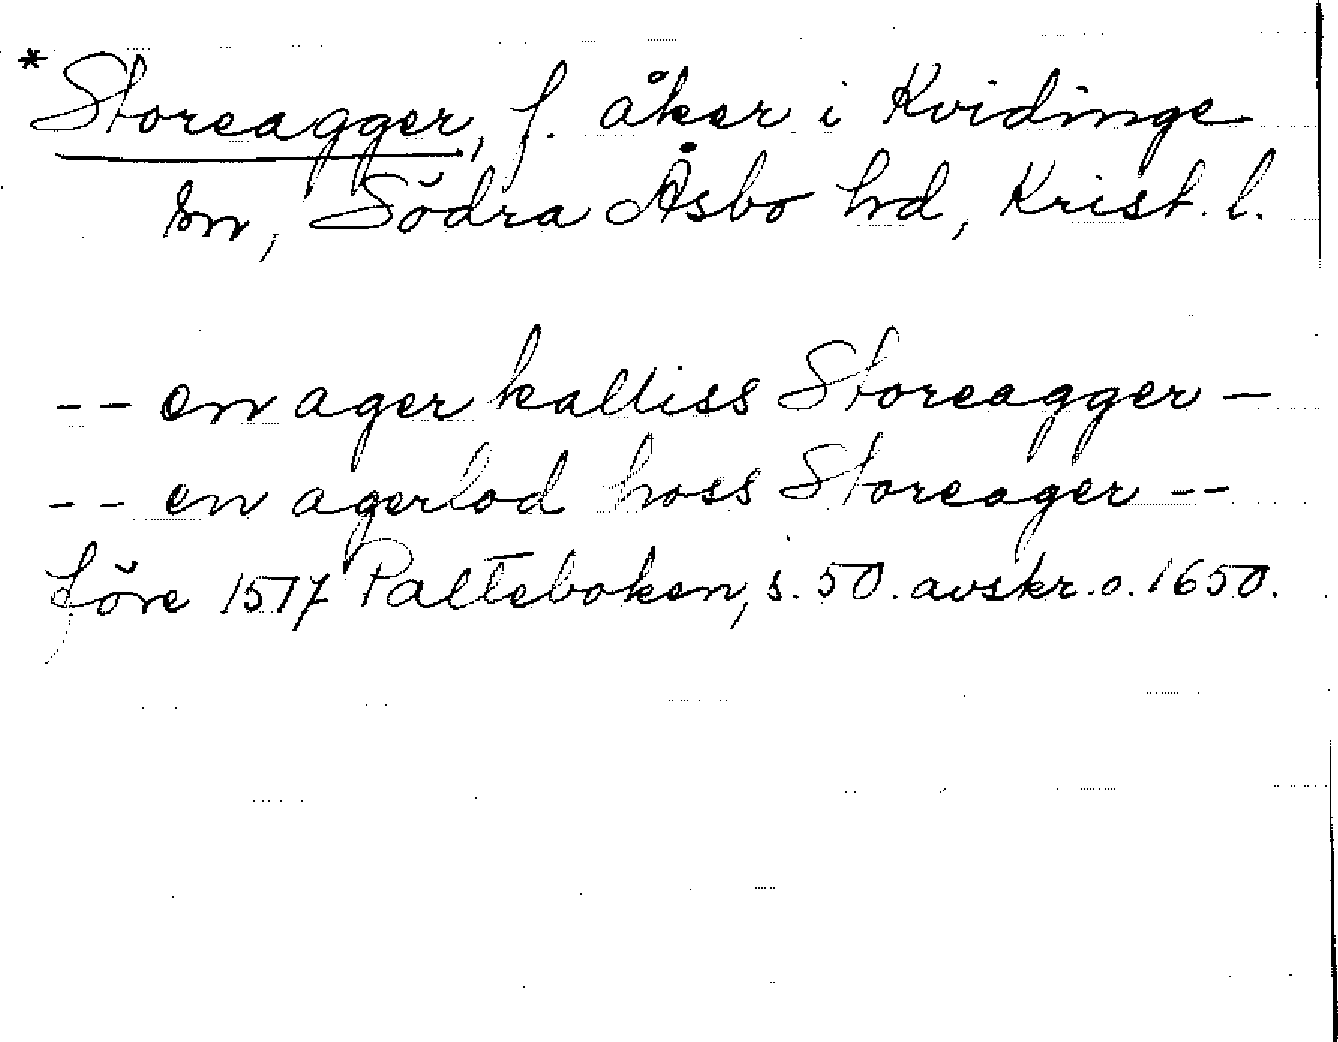 * Storeagger, f. åker i Kvidinge
sn, Södra Åsbo hd, Krist. l.
-- en ager kalliss Storeagger -
-- en agerlod hoss Storeager --
före 1517 Palteboken, s. 50. avskr. o. 1650.